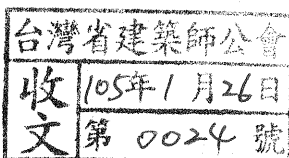 台灣省建築師公會
收文
105年1月26日
第 0024 號